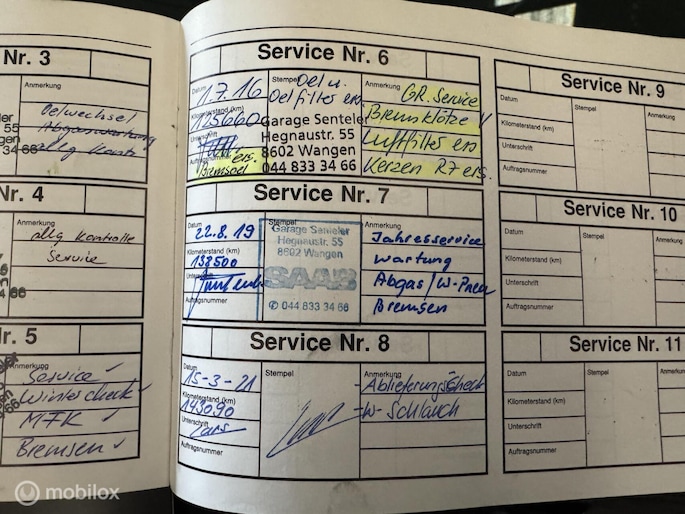 Nr. 3
Anmerkung
Oelwechsel
Abgaswartung
allg Kontr
55
Nr. 4
Anmerkung
allg Kontrolle
Service
Nr. 5
Anmerkung
Service ✓
Wintercheck ✓
MFK ✓
Bremsen ✓
Service Nr. 6
Datum
11.7.16
Kilometerstand (km)
125660
Auftragsnummer
ers.
Bremsoel
Stempel
Oel u.
Oelfilter ers.
Garage Senteler
Hegnaustr. 55
8602 Wangen
044 833 34 66
Anmerkung
GR. Service
Bremsklötze V
Luftfilter ers
Kerzen R7 ers.
Service Nr. 7
Datum
22.8.19
Kilometerstand (km)
138500
Unterschrift
Auftragsnummer
Stempel
Garage Senteler
Hegnaustr. 55
8602 Wangen
SAAB
✆ 044 833 34 66
Anmerkung
Jahresservice
Wartung
Abgas/W-Pneu
Bremsen
Service Nr. 8
Datum
15-3-21
Kilometerstand (km)
143090
Unterschrift
Auftragsnummer
Stempel
Anmerkung
-Ablieferungscheck
-W-Schlauch
Service Nr. 9
Datum
Kilometerstand (km)
Unterschrift
Auftragsnummer
Stempel
Service Nr. 10
Datum
Kilometerstand (km)
Unterschrift
Auftragsnummer
Stempel
Service Nr. 11
Datum
Kilometerstand (km)
Unterschrift
Auftragsnummer
Stempel
mobilox